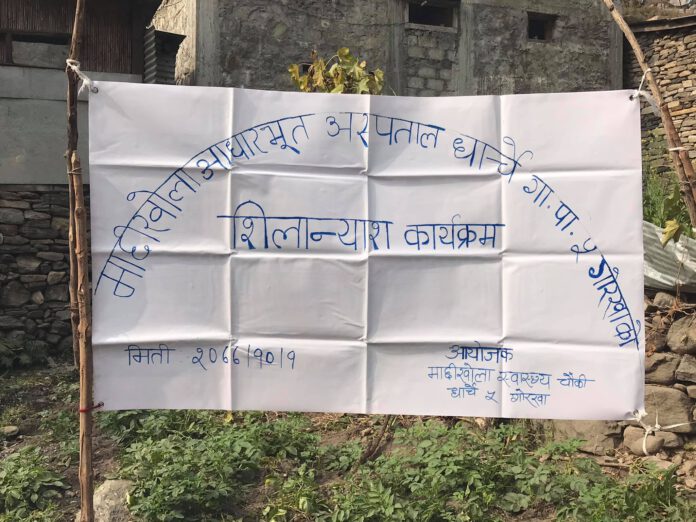 माछीखोला आधारभूत अस्पताल धार्चे गा. पा. ५ गोरखाको
शिलान्याश कार्यक्रम
मिती २०७७|१०|१
आयोजक
माछीखोला स्वास्थ्य चौकी
धार्चे ५ गोरखा